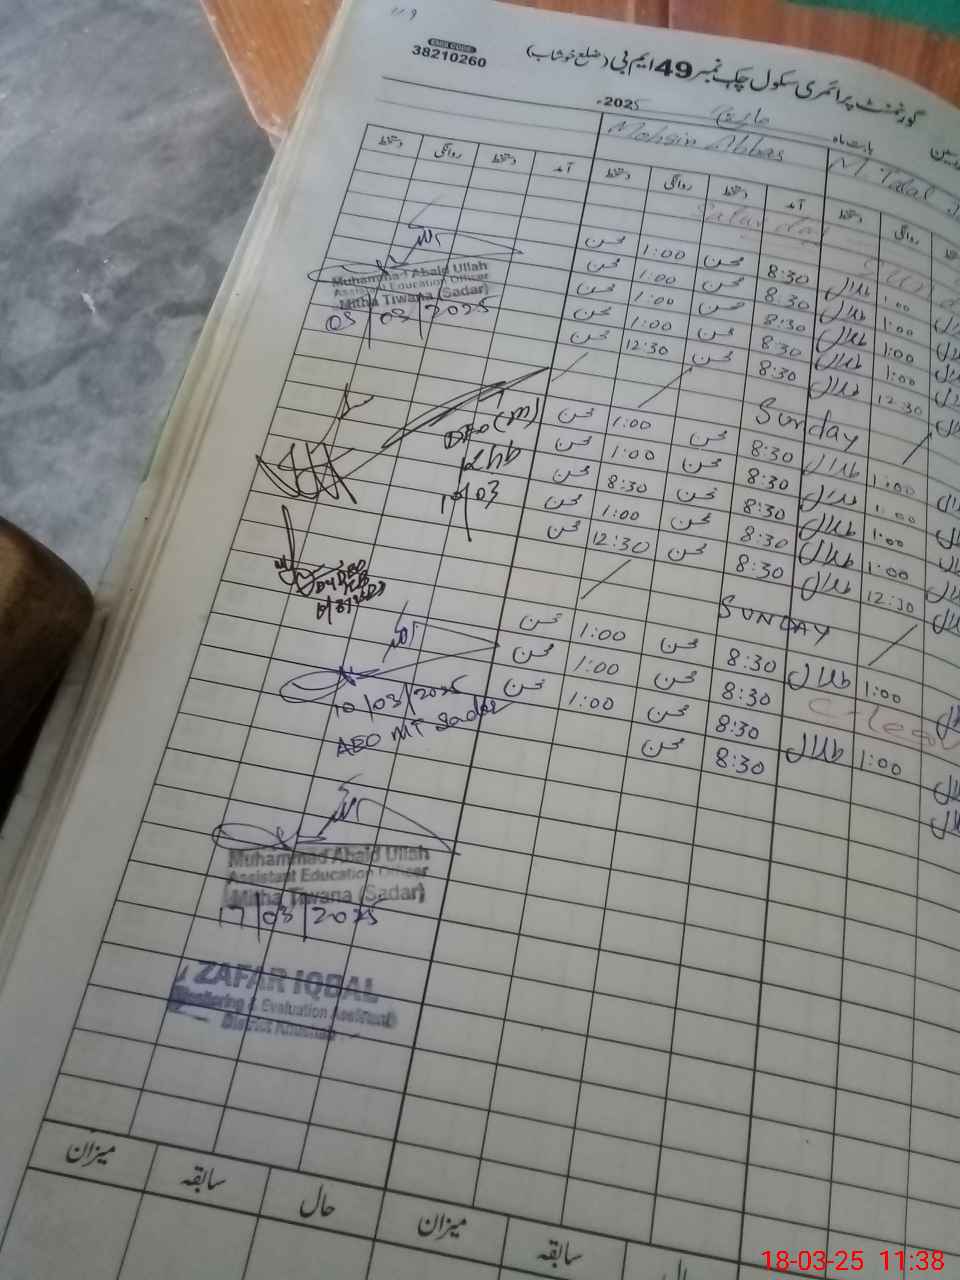 گورنمنٹ پرائمری سکول چک نمبر 49 ایم بی (ضلع خوشاب)
EMIS CODE
38210260
بابت ماہ مارچ 2025ء
Mohsin Abbas
M Talal
دستخط روانگی دستخط آمد دستخط روانگی دستخط آمد دستخط روانگی
Saturday
محسن 1:00 محسن 8:30 طلال 1:00
محسن 1:00 محسن 8:30 طلال 1:00
محسن 1:00 محسن 8:30 طلال 1:00
محسن 1:00 محسن 8:30 طلال 1:00
محسن 12:30 محسن 8:30 طلال 12:30
Sunday
محسن 1:00 محسن 8:30 طلال 1:00
محسن 1:00 محسن 8:30 طلال 1:00
محسن 8:30 محسن 8:30 طلال 1:00
محسن 1:00 محسن 8:30 طلال 1:00
محسن 12:30 محسن 8:30 طلال 12:30
SUNDAY
محسن 1:00 محسن 8:30 طلال 1:00
محسن 1:00 محسن 8:30
محسن 1:00 محسن 8:30 طلال 1:00
محسن 8:30
Muhammad Abaid Ullah
Assistant Education Officer
Mitha Tiwana (Sadar)
03/03/2025
DEO (M)
Khb
10/03
10/03/2025
AEO MT Sadar
Muhammad Abaid Ullah
Assistant Education Officer
Mitha Tiwana (Sadar)
17/03/2025
ZAFAR IQBAL
Monitoring & Evaluation Assistant
District Khushab
میزان سابقہ حال میزان سابقہ حال
18-03-25 11:38